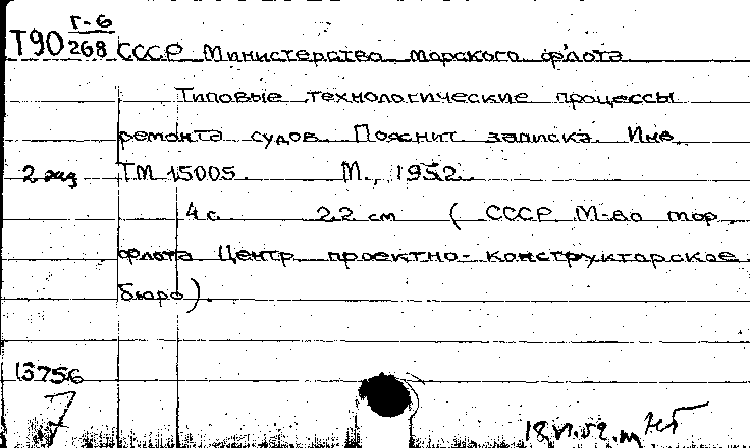 Г-6
Т90 268 СССР Министерство морского флота
Типовые технологические процессы
ремонта судов. Пояснит записка. Инв.
2 экз ТМ 15005. М., 1952.
4 с. 22 см (СССР М-во мор.
флота Центр проектно-конструкторское
бюро).
13756
7